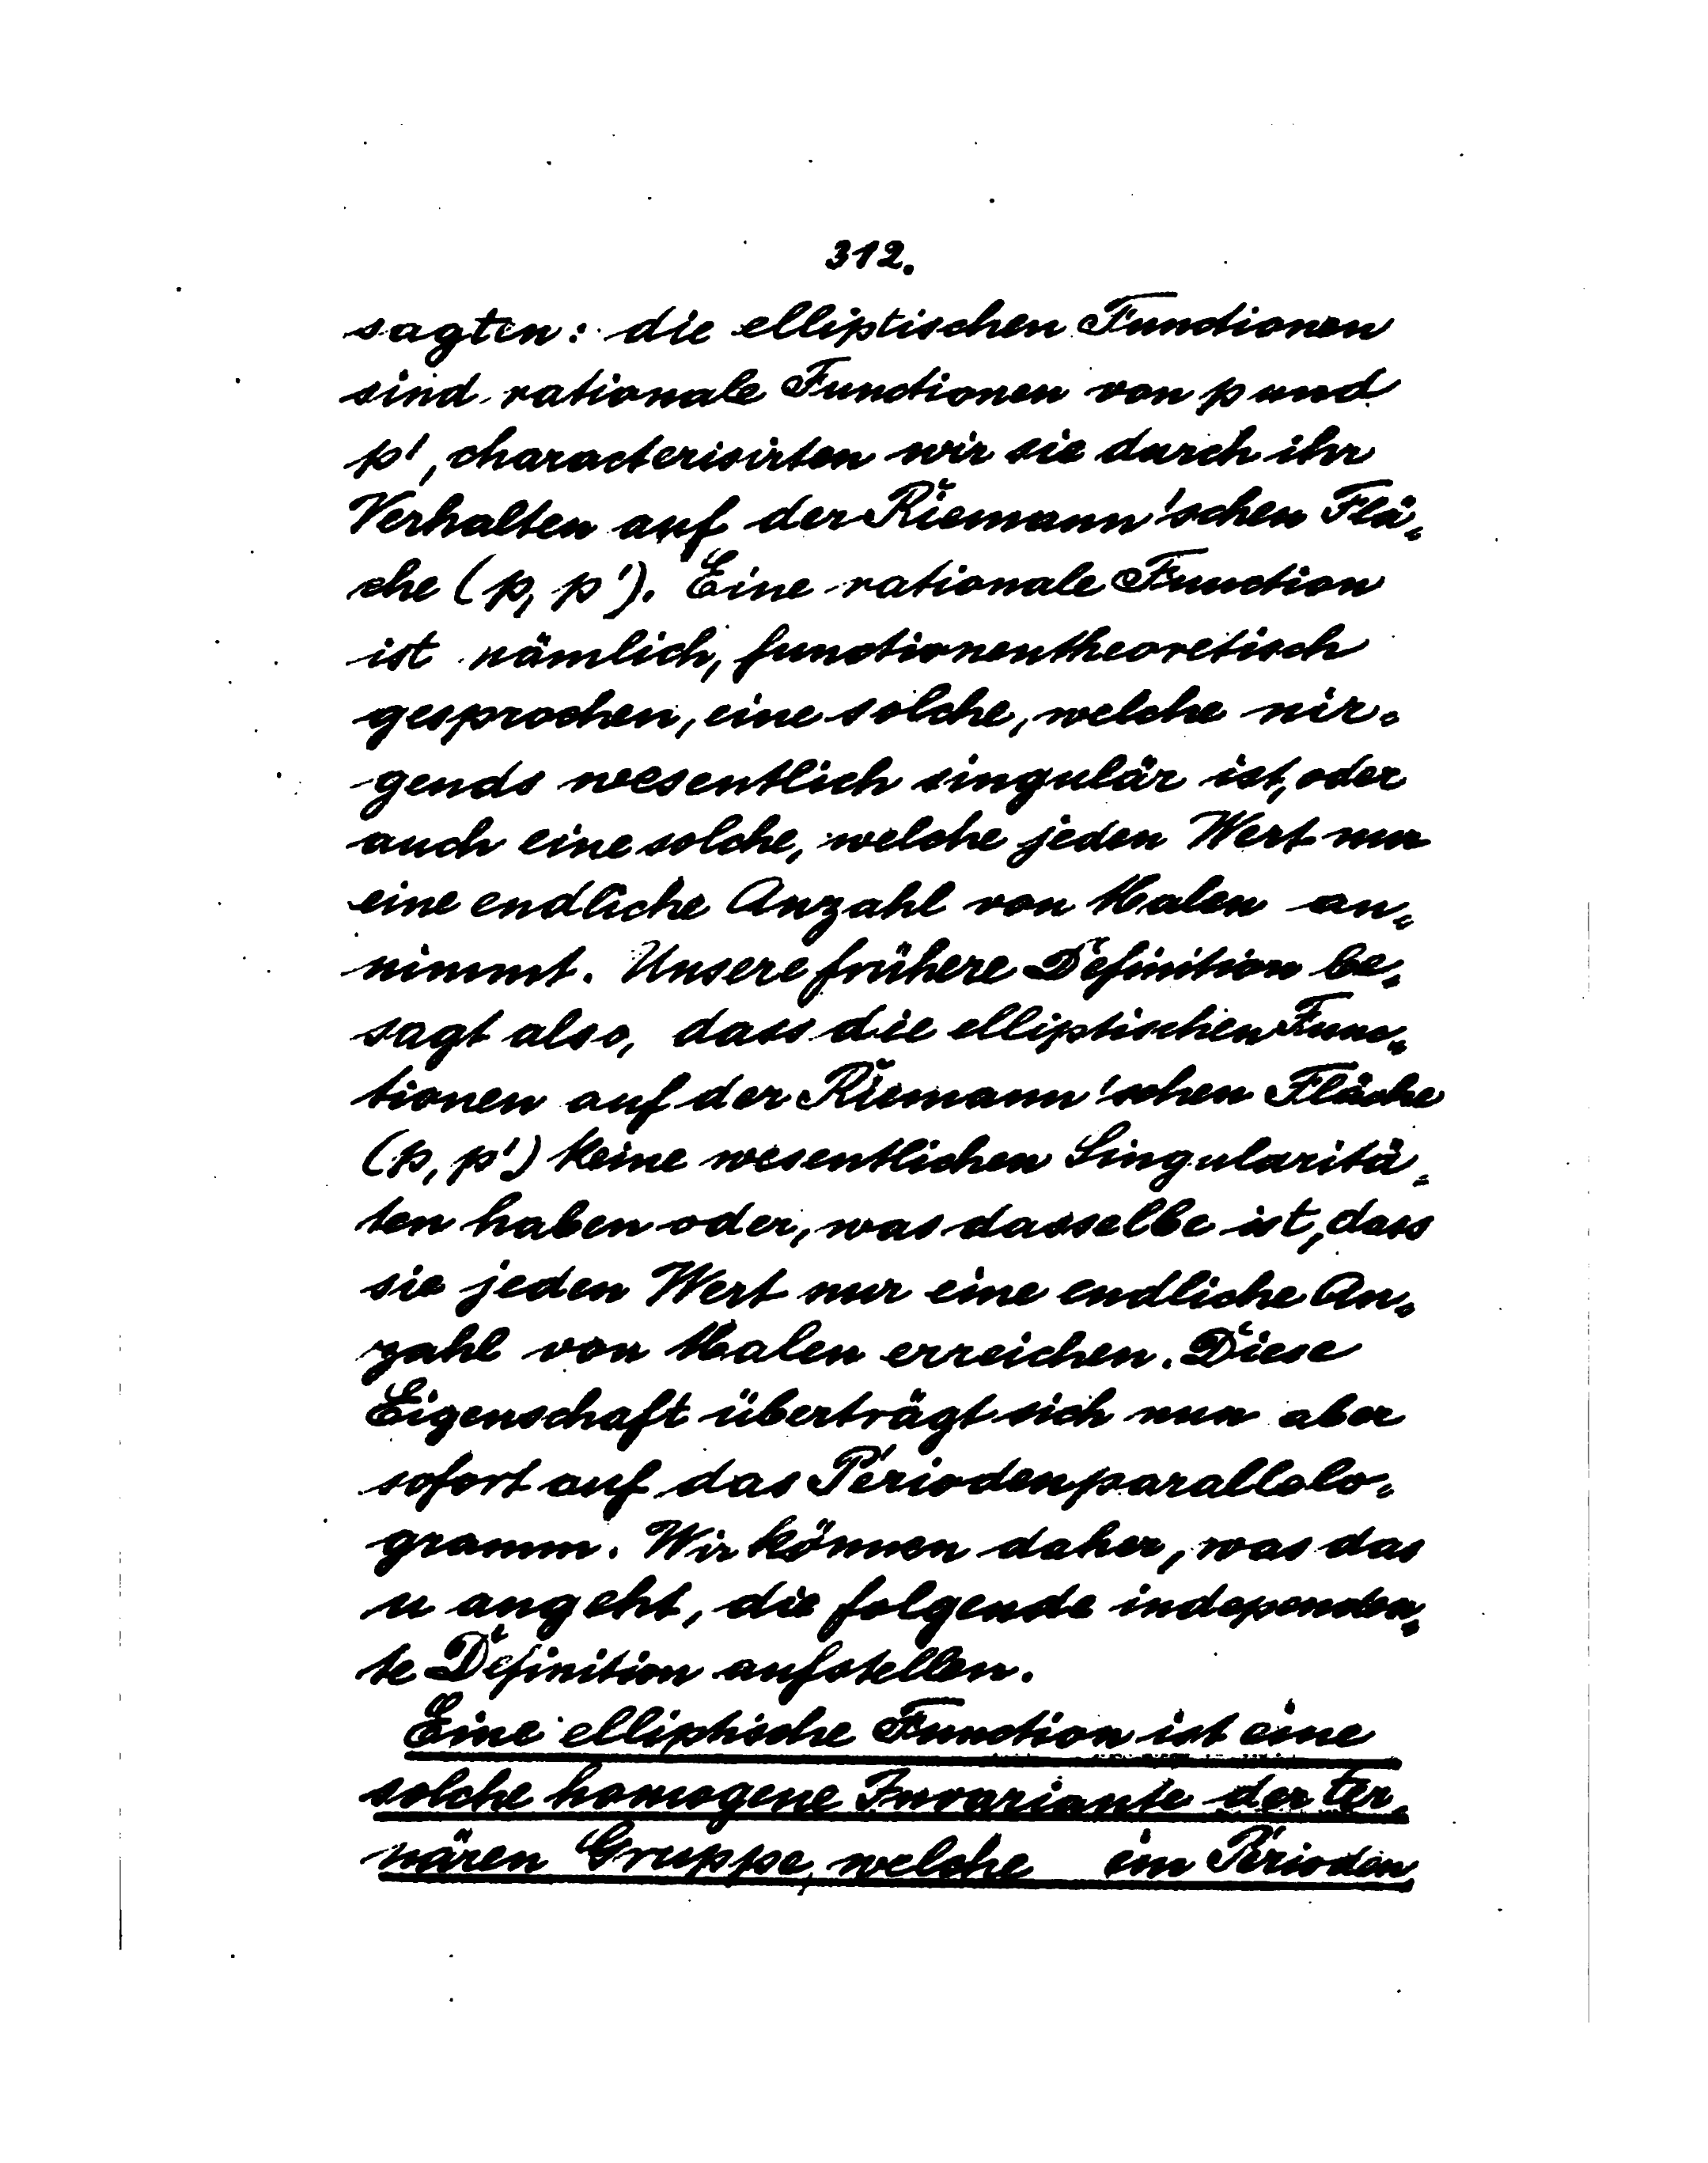 312.
sagten: die elliptischen Functionen
sind rationale Functionen von p und
p', characterisirten wir sie durch ihr
Verhalten auf der Riemann'schen Flä-
che (p, p'). Eine rationale Function
ist nämlich, functionentheoretisch
gesprochen, eine solche, welche nir-
gends wesentlich singulär ist, oder
auch eine solche, welche jeden Wert nur
eine endliche Anzahl von Malen an-
nimmt. Unsere frühere Definition be-
sagt also, dass die elliptischen Func-
tionen auf der Riemann'schen Fläche
(p, p') keine wesentlichen Singularitä-
ten haben oder, was dasselbe ist, dass
sie jeden Wert nur eine endliche An-
zahl von Malen erreichen. Diese
Eigenschaft überträgt sich nun aber
sofort auf das Periodenparallelo-
gramm. Wir können daher, was das
u angeht, die folgende independen-
te Definition aufstellen.
Eine elliptische Function ist eine
solche homogene Invariante der ter-
nären Gruppe, welche im Perioden-